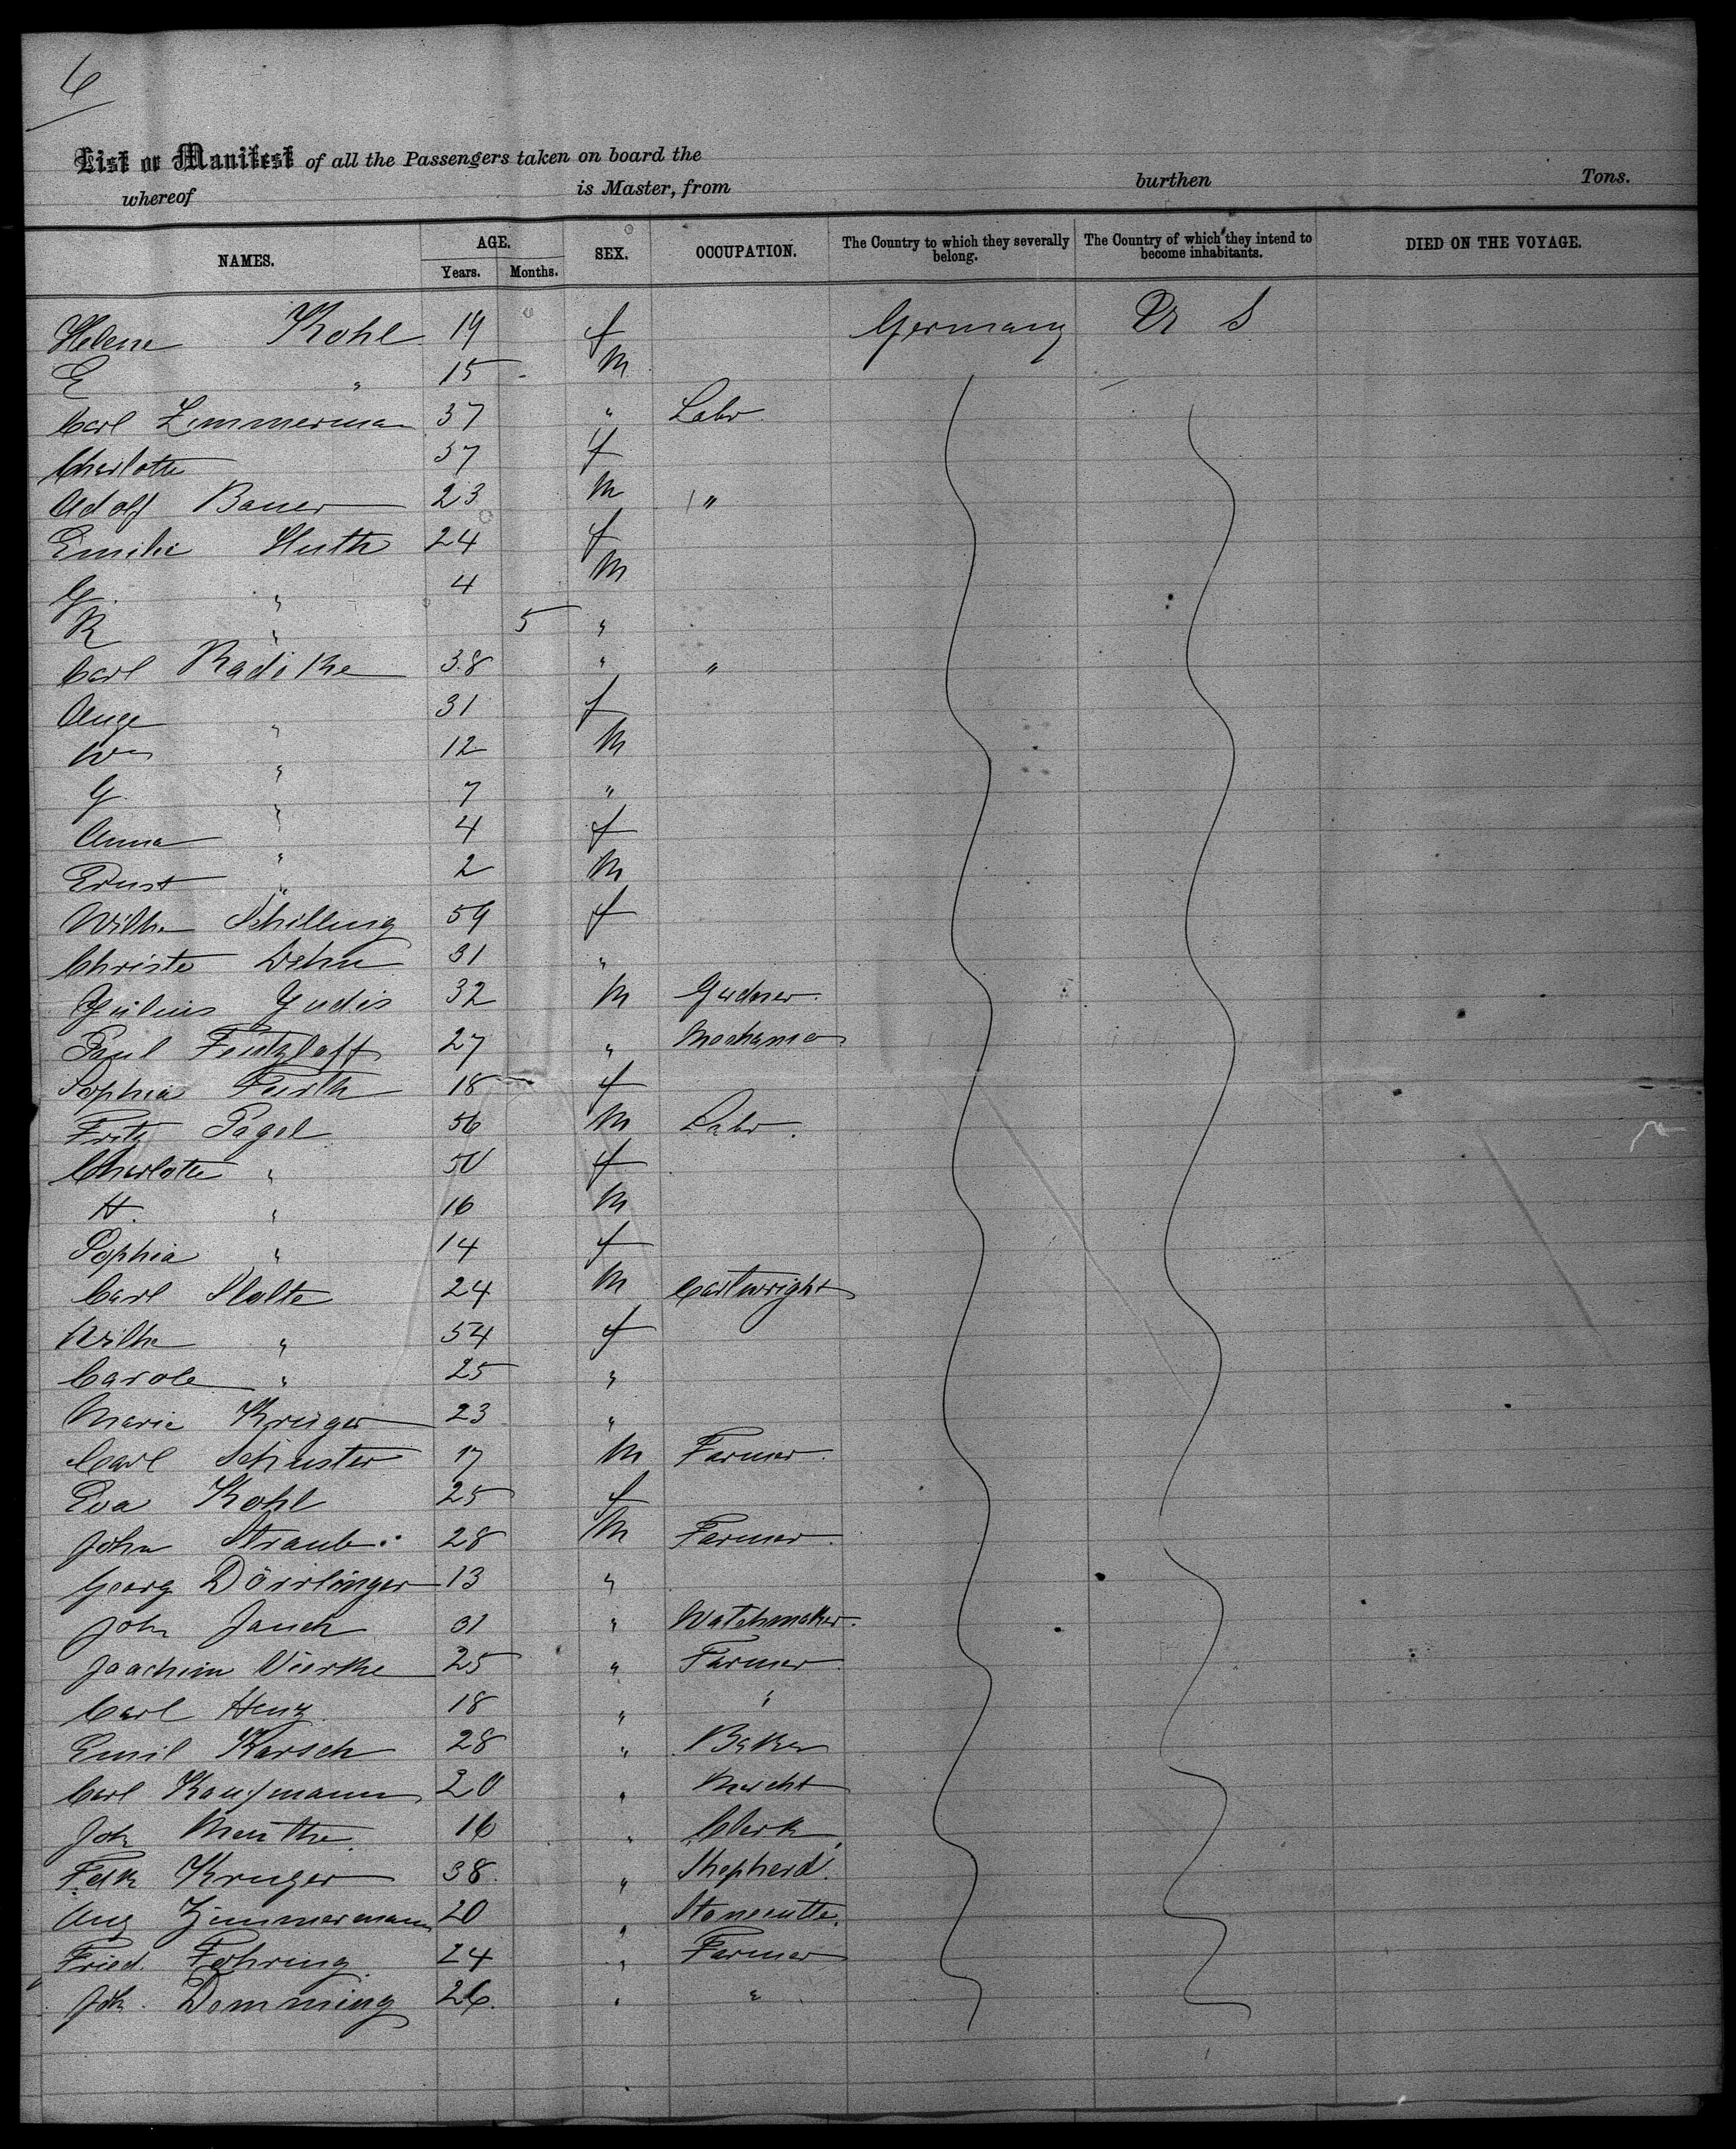 6
List or Manifest of all the Passengers taken on board the burthen Tons.
whereof is Master, from
NAMES. AGE. SEX. OCCUPATION. The Country to which they severally belong. The Country of which they intend to become inhabitants. DIED ON THE VOYAGE.
Years. Months.
Helene Kohl 19 f Germany U S
E " 15 - M
Carl Zimmerman 37 " Labr
Charlotte 37 f
Adolf Bauer 23 M "
Emilie Huth 24 f
G " 4 M
R " 5 "
Carl Radike 38 " "
Auge " 31 f
Wm " 12 M
G " 7 "
Anna " 4 f
Ernst " 2 M
Wilhe Schilling 59 f
Christe Dehn 31 "
Julius Judis 32 M Gardner
Paul Fentzlaff 27 " Mechanic
Sophia Furth 18 f
Fritz Pagel 56 M Labr.
Charlotte " 50 f
H. " 16 M
Sophia " 14 f
Carl Stolte 24 M Cartwright
Wilhe " 54 f
Carole " 25 "
Marie Krüger 23 "
Carl Schuster 17 M Farmer
Eva Kohl 25 f
John Straub 28 M Farmer
Georg Dörrlinger 13 "
John Jauch 31 " Watchmaker.
Joachim Vierke 25 " Farmer
Carl Henz 18 " "
Emil Karsch 28 " Baker
Carl Kaufmann 20 " Mercht
Joh Meuthe 16 " Clerk
Fdk Kruger 38 " Shepherd
Aug Zimmermann 20 " Stonecutte.
Fried. Fehring 24 " Farmer
Joh. Demming 26 " "